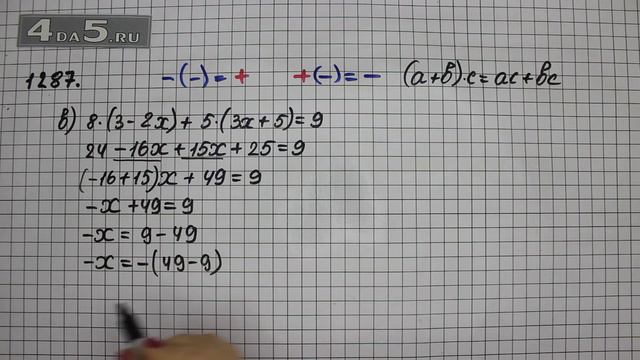 4DA5.RU
1287. -(-)=+ +(-)=- (a+b)·c=ac+bc
в) 8·(3-2x)+5·(3x+5)=9
24-16x+15x+25=9
(-16+15)x+49=9
-x+49=9
-x=9-49
-x=-(49-9)